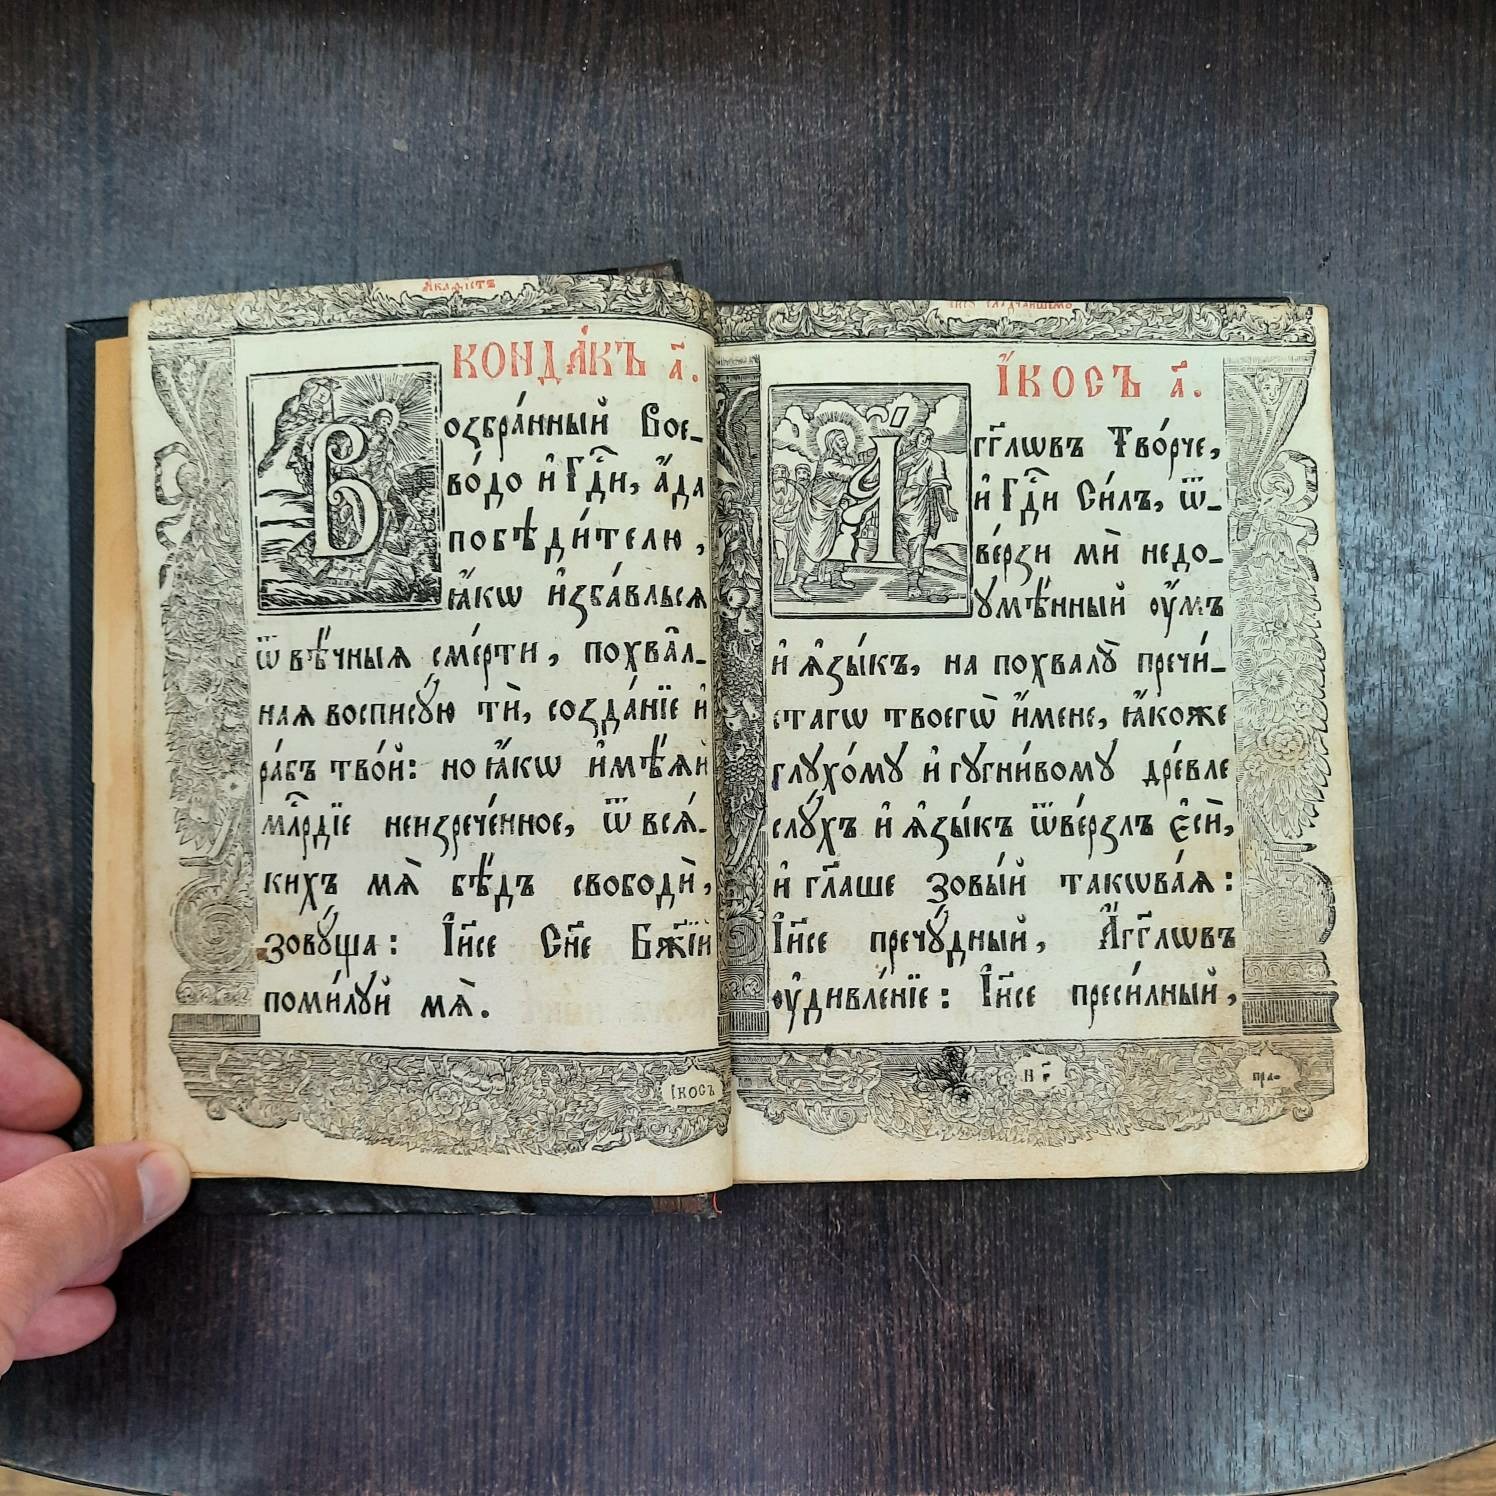 Акаѳистъ
КОНДА́КЪ а҃.
Возбра́нный Вое-
во́до и҆ Гдⷭ҇и, а҆́да
побѣди́телю,
ꙗ҆́кѡ и҆зба́вльсѧ
ѿ вѣ́чныѧ сме́рти, похва̑л-
наѧ восписꙋ́ю тѝ, созда́нїе и҆
ра́бъ тво́й: но ꙗ҆́кѡ и҆мѣ́ѧй
млⷭ҇рдїе неизрече́нное, ѿ всѧ́-
кихъ мѧ̀ бѣ́дъ свободѝ,
зовꙋ́ща: І҆и҃се Сн҃е Бж҃їй
поми́лꙋй мѧ̀.
І҆́косъ
І҆и҃сꙋ сладчайшемꙋ
І҆́КОСЪ а҃.
А҆́гг҃лѡвъ Тво́рче,
и҆ Гдⷭ҇и Си́лъ, ѿ-
ве́рзи мѝ недо-
ꙋмѣ́нный ᲂу҆́мъ
и҆ ѧ҆зы́къ, на похвалꙋ̀ пречи́-
стагѡ твоегѡ̀ и҆́мене, ꙗ҆́коже
глꙋхо́мꙋ и҆ гꙋгни́вомꙋ дре́вле
слꙋ́хъ и҆ ѧ҆зы́къ ѿве́рзлъ є҆сѝ,
и҆ гл҃аше зовы́й такѡва́ѧ:
І҆и҃се пречꙋ́дный, А҆́гг҃лѡвъ
ᲂу҆дивле́нїе: І҆и҃се преси́лный,
пра-